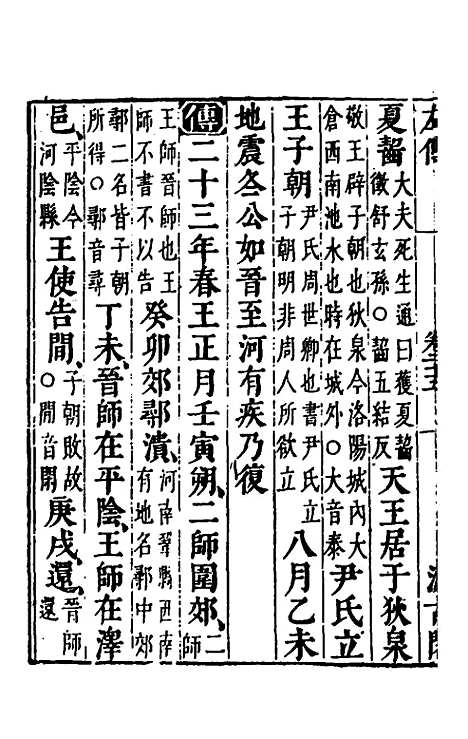 夏齧大夫死生通曰獲夏齧徵舒玄孫○齧五結反天王居于狄泉
敬王辟子朝也狄泉今洛陽城內大倉西南池水也時在城外○大音泰尹氏立
王子朝尹氏周世卿也書尹氏立子朝明非周人所欲立八月乙未
地震冬公如晉至河有疾乃復
傳二十三年春王正月壬寅朔、二師圍郊、二師
王師晉師也王師不書不以告癸卯郊鄩潰、河南鞏縣西南有地名鄩中郊
鄩二名皆子朝所得○鄩音尋丁未、晉師在平陰、王師在澤
邑、平陰今河陰縣王使告間、子朝敗故○間音閑庚戌、還、晉師還